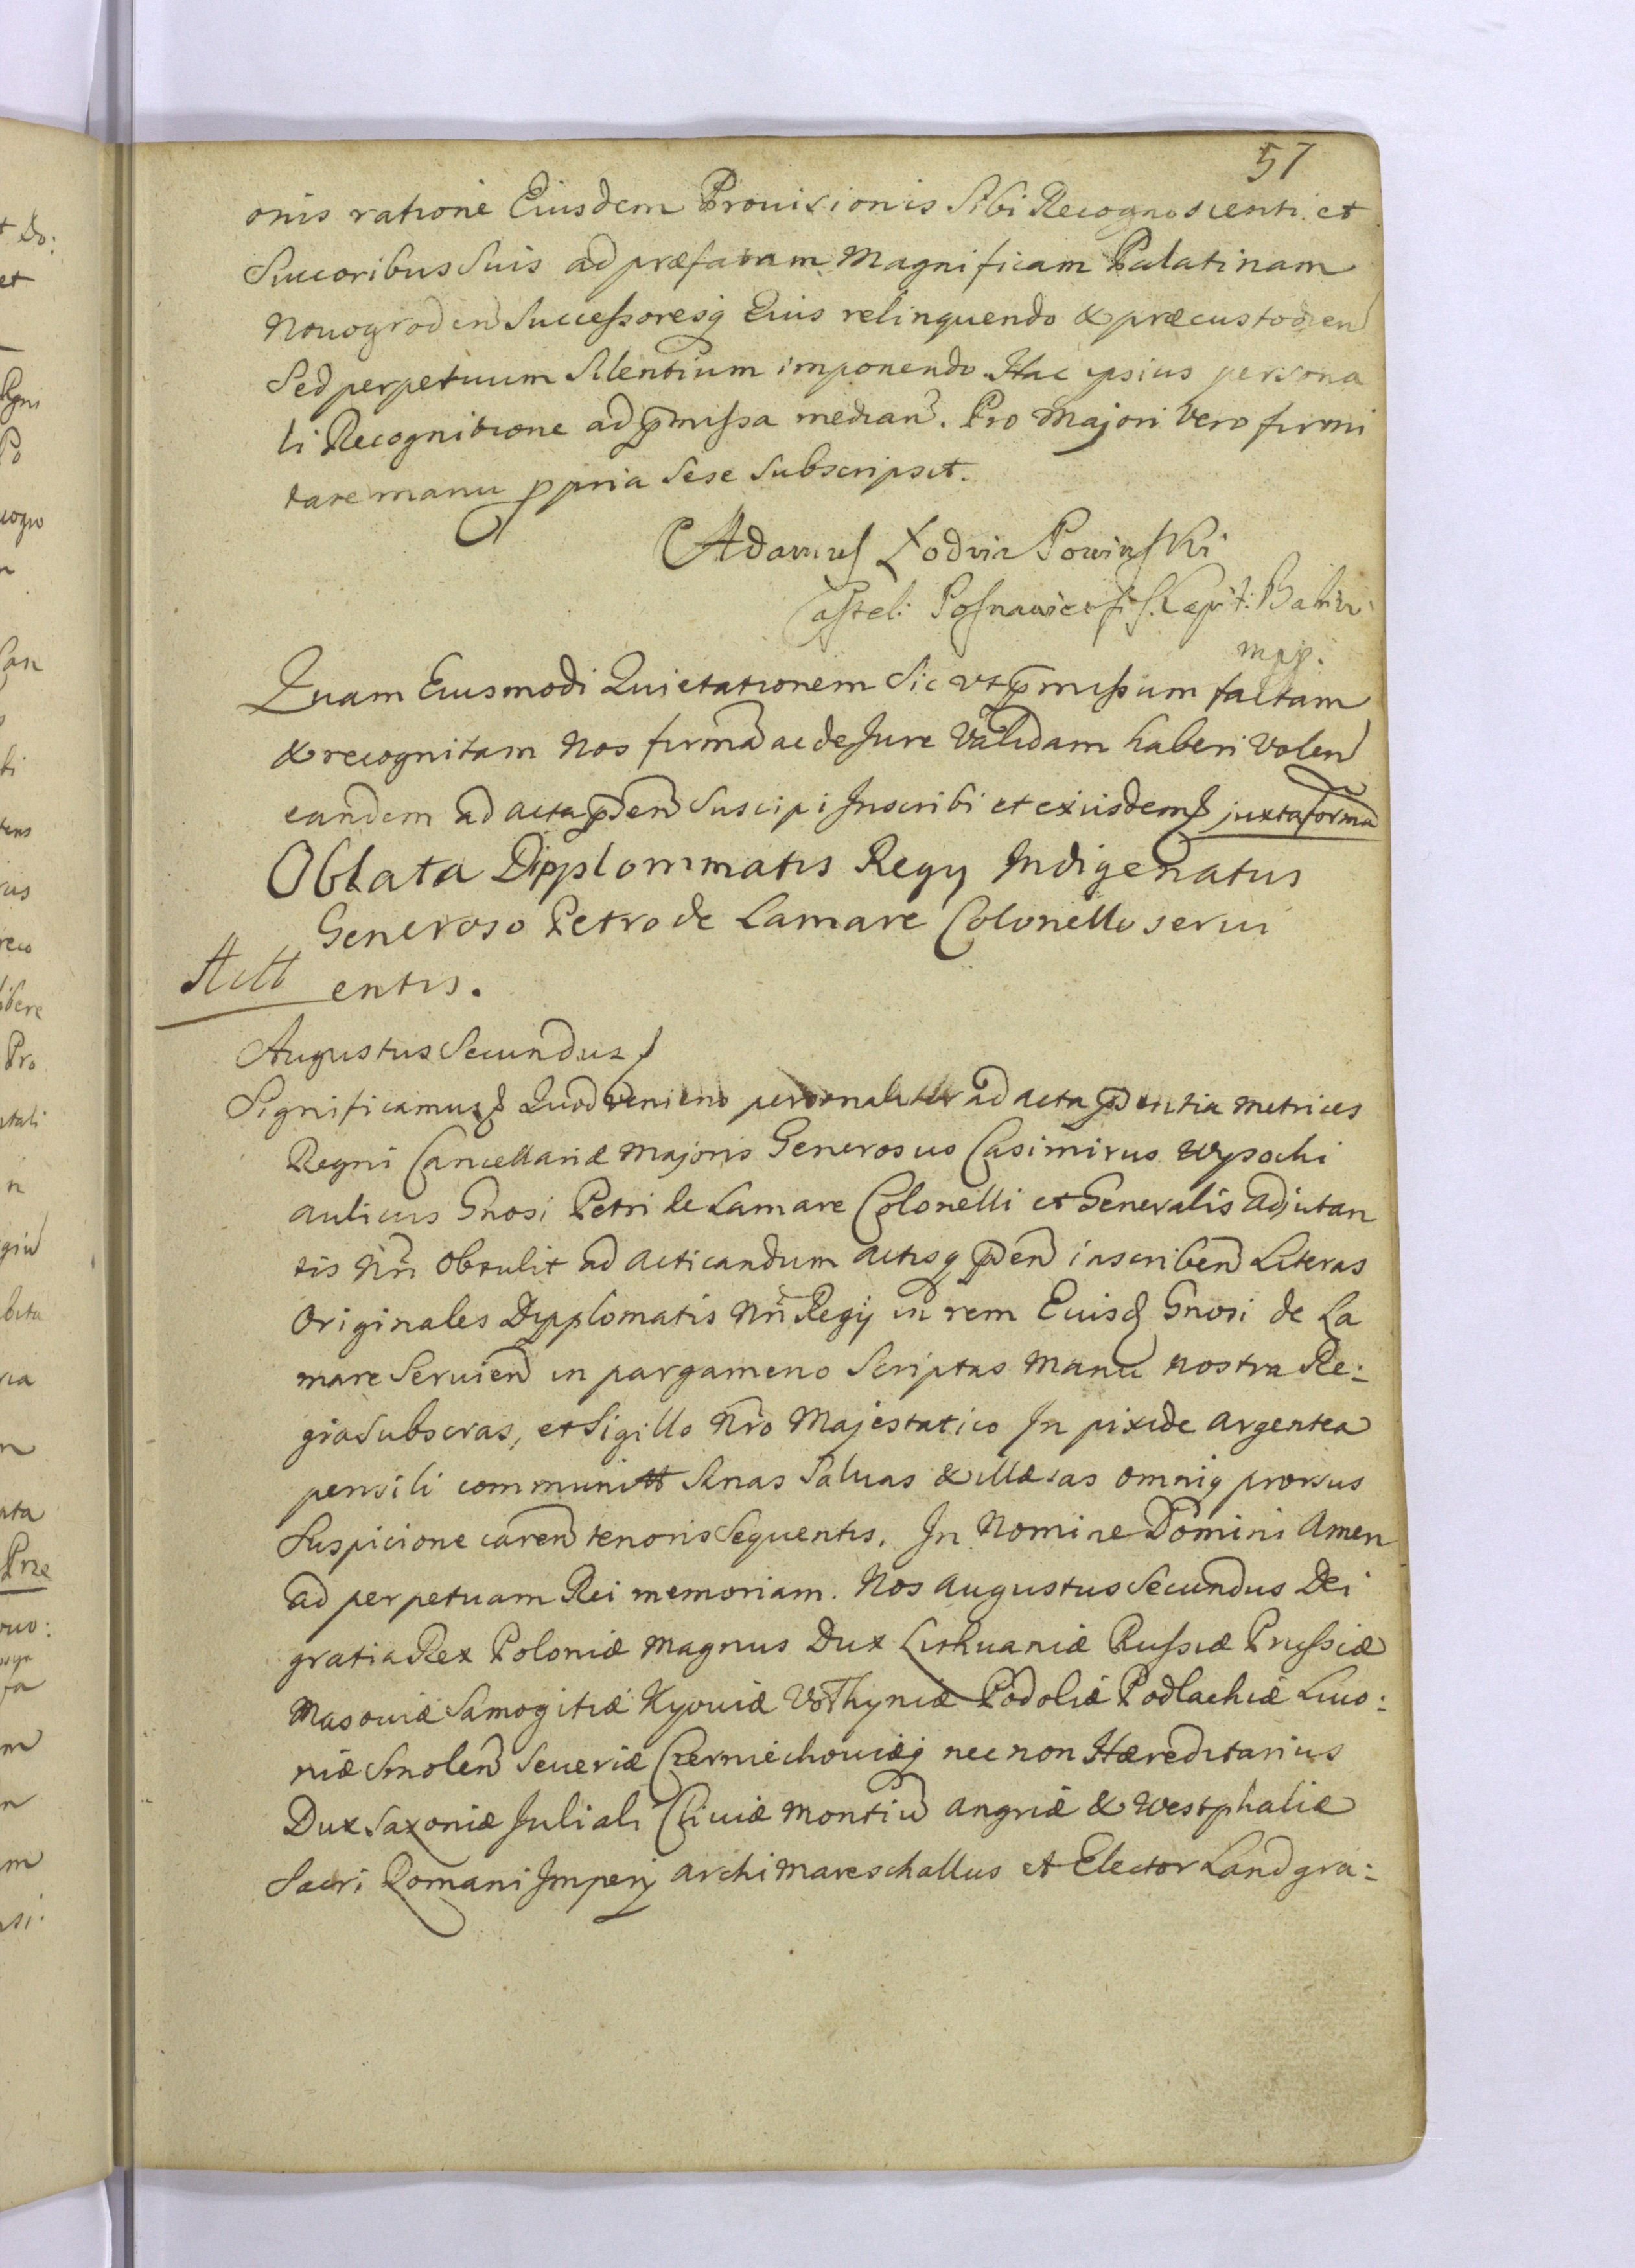 57
onis ratione Eiusdem Prouisionis Sibi Recognoscenti et
Succoribus Suis ad præfatam Magnificam Palatinam
Nouogroden Successoresq Eius relinquendo & præcustodien
Sed perpetuum Silentium imponendo. Hac ipsius persona
li Recognitione ad pmissa median. Pro Majori Vero firmi
tate manu ppria Sese Subscripsit.
Adamus Lodzia Poninski
Castel: Posnaniensis Capit: Babim
mpp.
Quam Eiusmodi Quietationem Sic vt pmissum factam
& recognitam Nos firma ac de Jure Validam haberi Volen
eandem ad acta pden Suscipi Inscribi et exiisdem juxta forma
Oblata Dipplommatis Regy Indigenatus
Generoso Petro de Lamare Colonello serui
entis.
Augustus Secundus
Significamus Quod veniens personaliter ad acta pdentia Metrices
Regni Cancellariæ Majoris Generosus Casimirus Wysocki
aulicus Gnosi Petri de Lamare Colonelli et Generalis adjutan
tis Nri obtulit ad acticandum actisq pden inscriben Literas
Originales Dypplomatis Nri Regij in rem Eiusd Gnosi de La
mare Seruien in pargameno Scriptas Manu nostra Re:
gia Subscras, et Sigillo Nro Majestatico In pixide argentea
pensili communitt Sanas Saluas & illæsas omniq prorsus
Suspicione caren tenoris Sequentis. In Nomine Domini Amen
ad perpetuam Rei memoriam. Nos Augustus Secundus Dei
gratia Rex Poloniæ Magnus Dux Lithuaniæ Russiæ Prussiæ
Masouiæ Samogitiæ Kyouiæ Volhyniæ Podoliæ Podlachiæ Liuo:
niæ Smolen Seueriæ Czerniechouiæq nec non Hæreditarius
Dux Saxoniæ Juliaci Cliuiæ Montiu Angriæ & Westphaliæ
Sacri Romani Impery Archimareschallus et Elector Landgra: